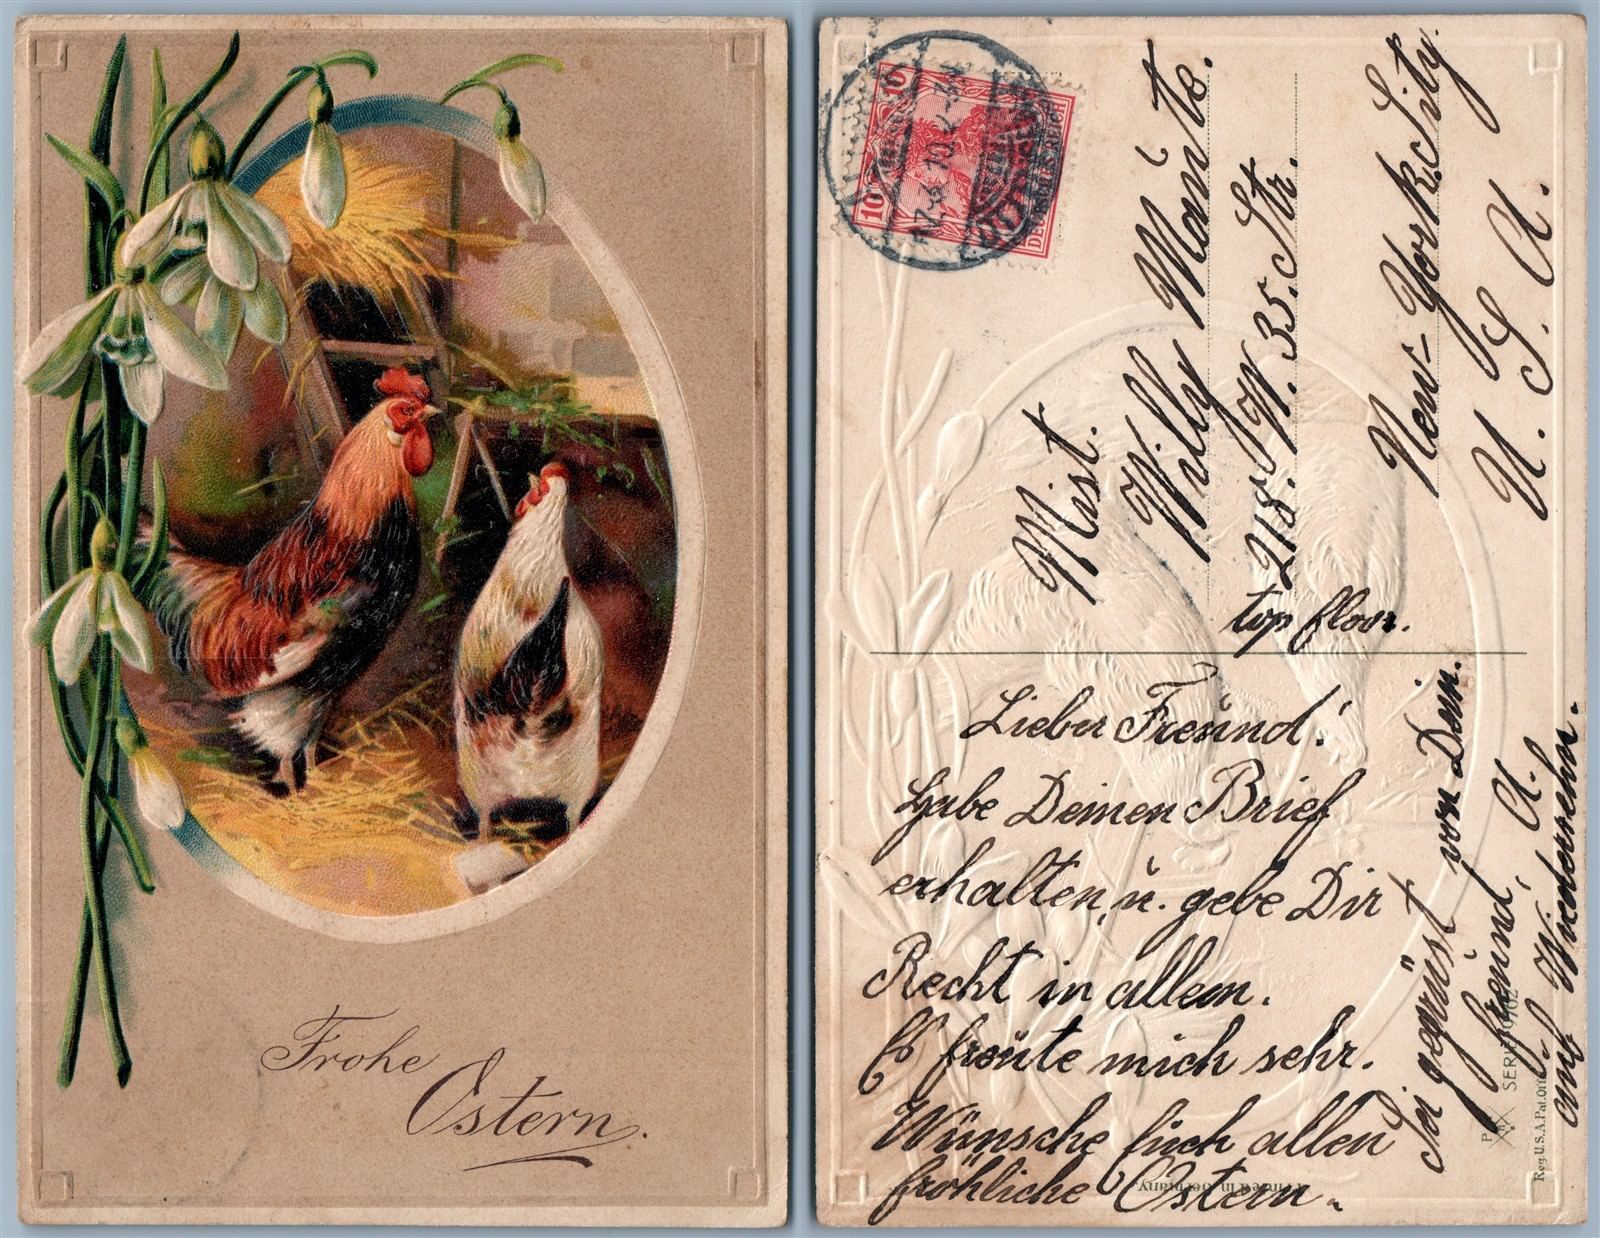 Frohe
Ostern.
10
10
DEUTSCHES REICH
Mist.
Willy Mants.
218. W. 35. Str.
top floor.
New-York. Sity.
U. S. A.
Lieber Freund!
Habe Deinen Brief
erhalten, u. gebe Dir
Recht in allem.
Es freute mich sehr.
Wünsche Euch allen
fröhliche Ostern.
Sei gegrüst von Dein.
freund, A.
auf Wiedersehn.
SERIE
Printed in Germany.
Reg. U.S.A. Pat. Off.